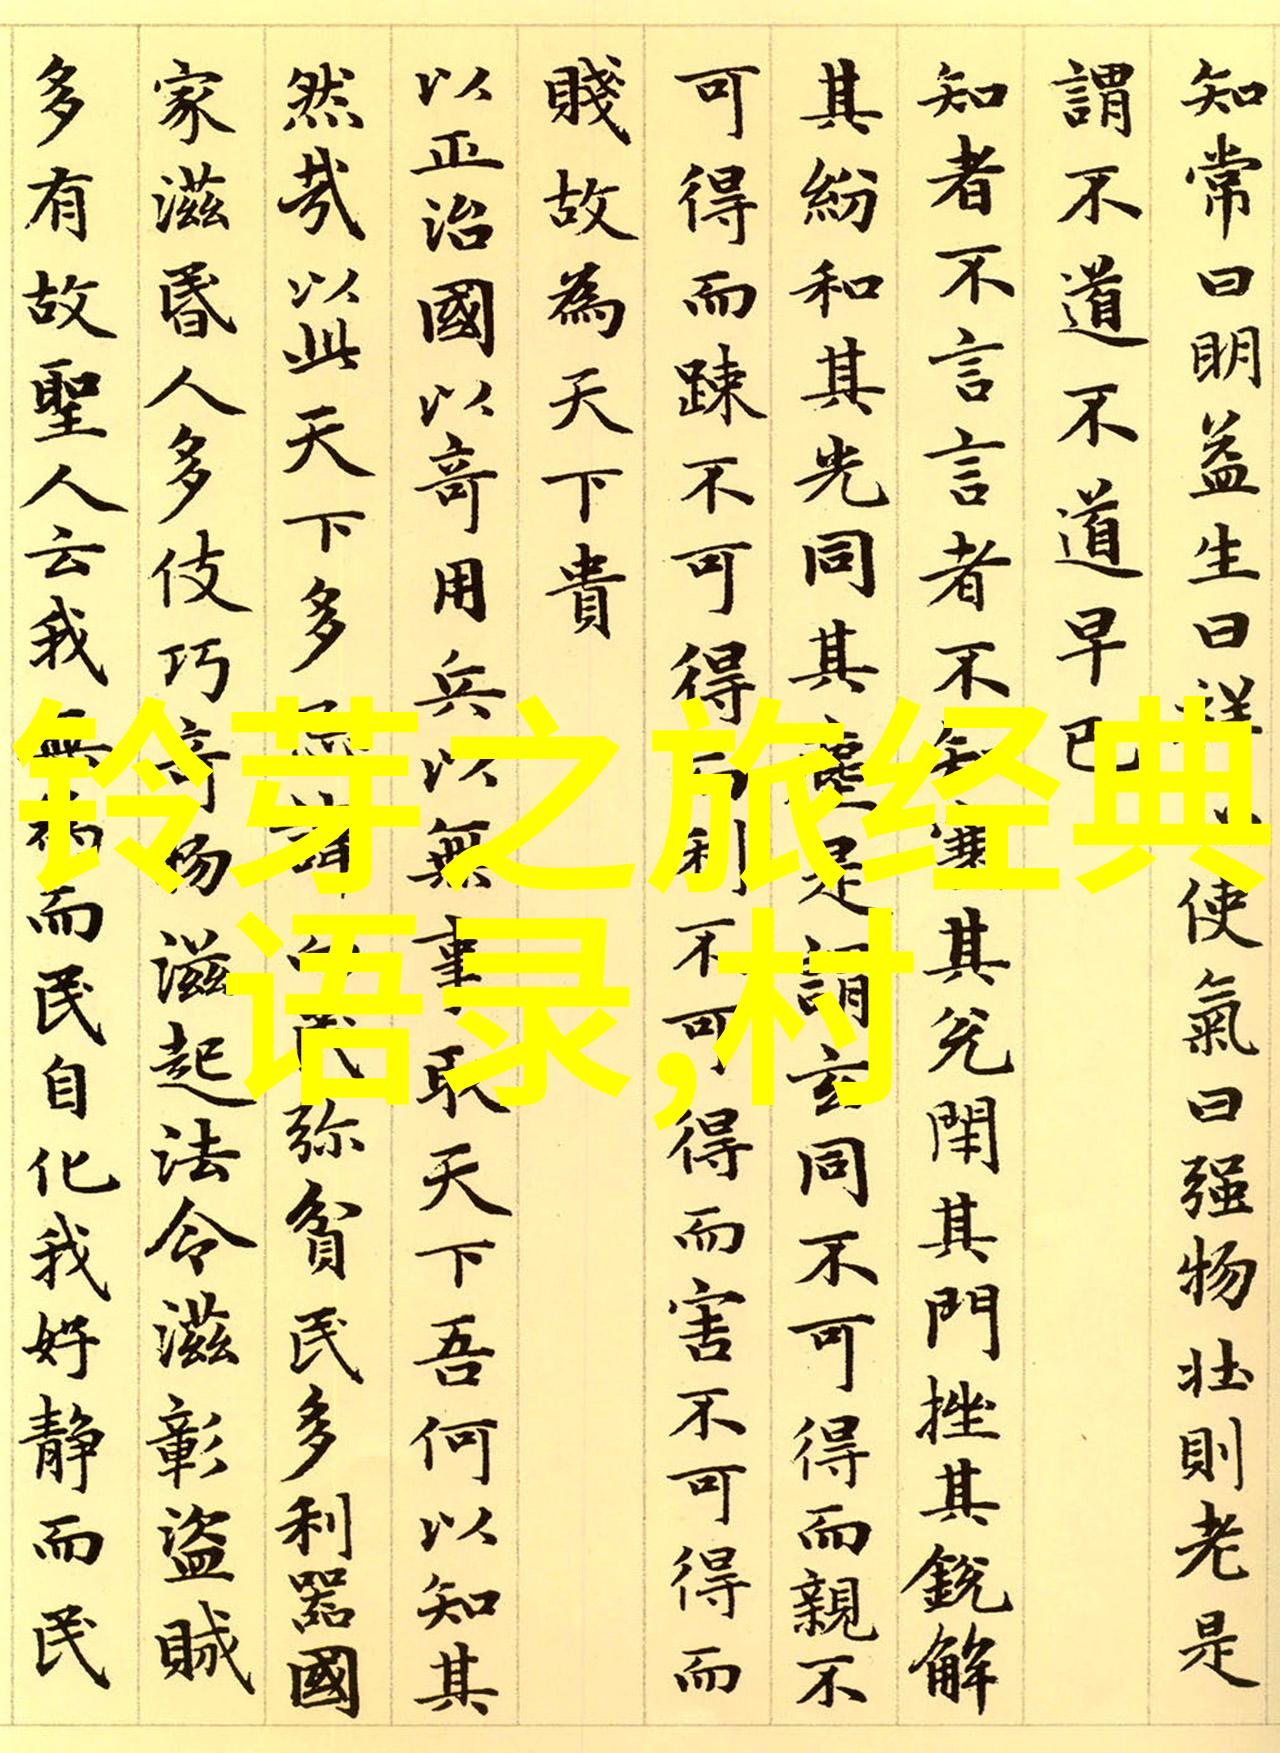 知常曰明益生曰祥使氣曰强物壯則老是
謂不道不道早已
知者不言言者不知塞其兊閇其門挫其銳解
其紛和其光同其塵是謂玄同不可得而親不
可得而踈不可得而利不可得而害不可得而
賤故為天下貴
以正治國以竒用兵以無事取天下吾何以知其
然㢤以此天下多諱民弥貧民多利器國
家滋昏人多伎巧竒物滋起法令滋彰盜賊
多有故聖人云我無而民自化我好靜而民
铃芽之旅经典
语录,村